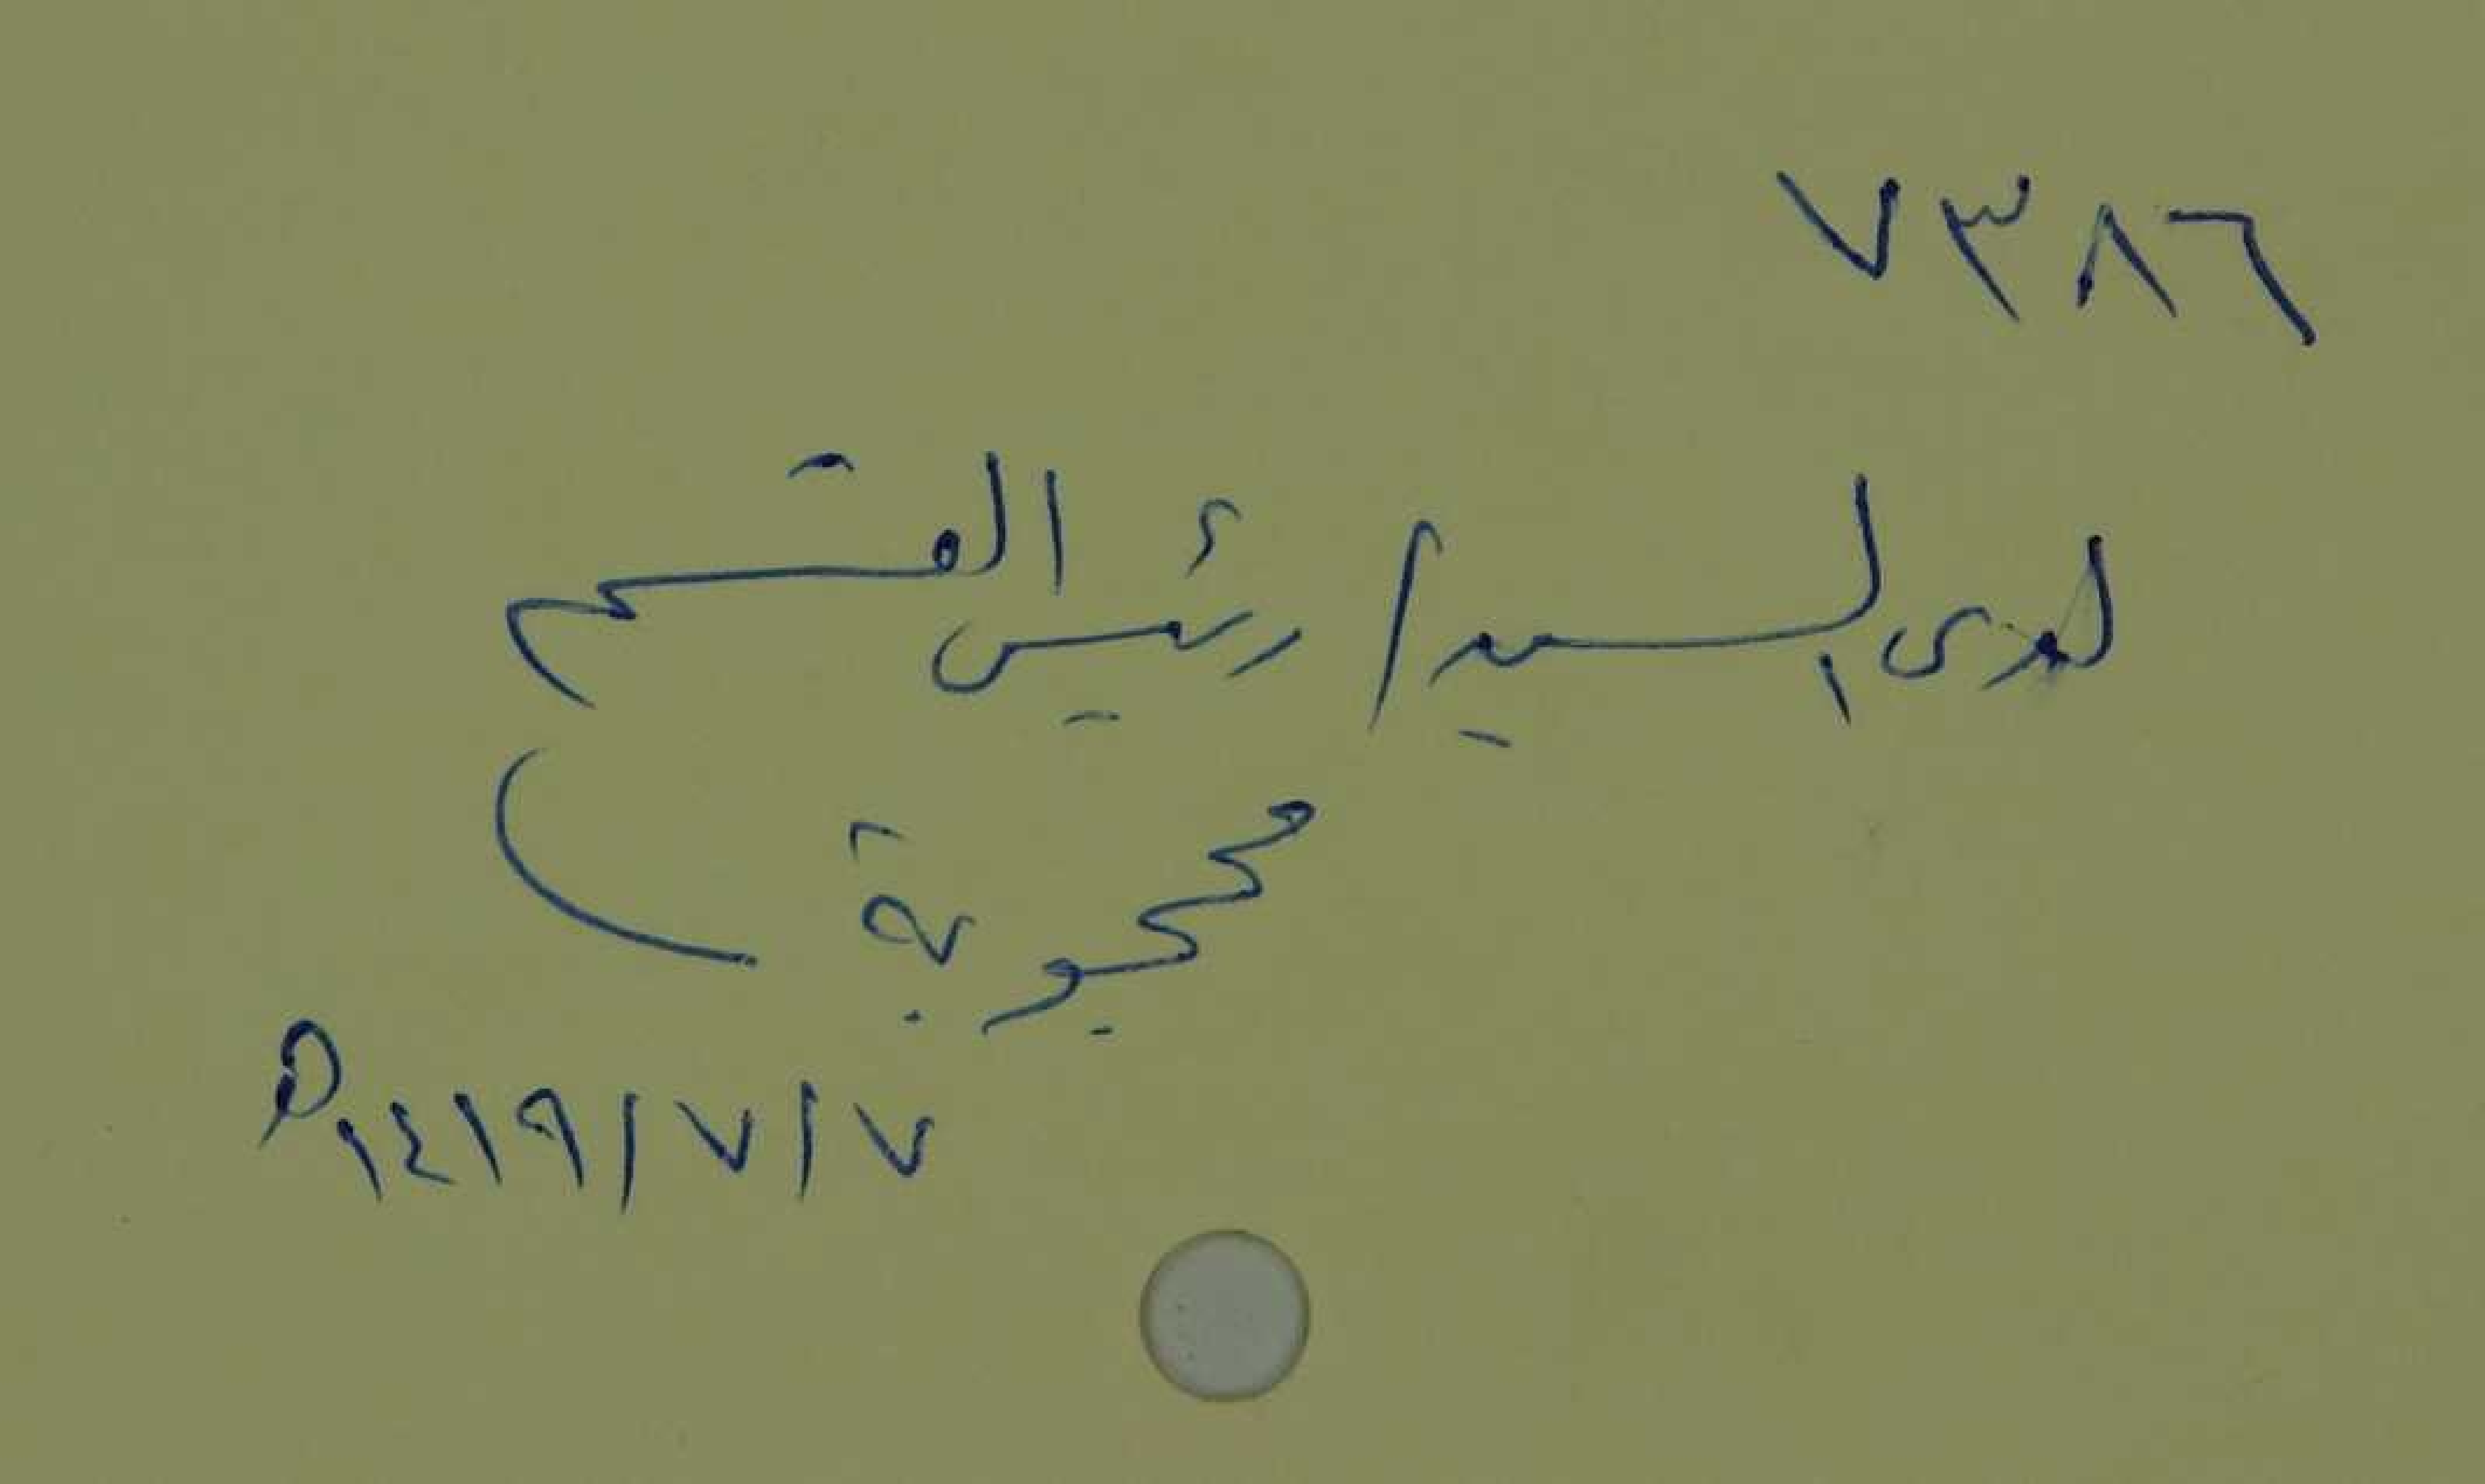 ٧٣٨٦
لدى السيد / رئيس القسم
١٤١٩/٧/٧ هـ